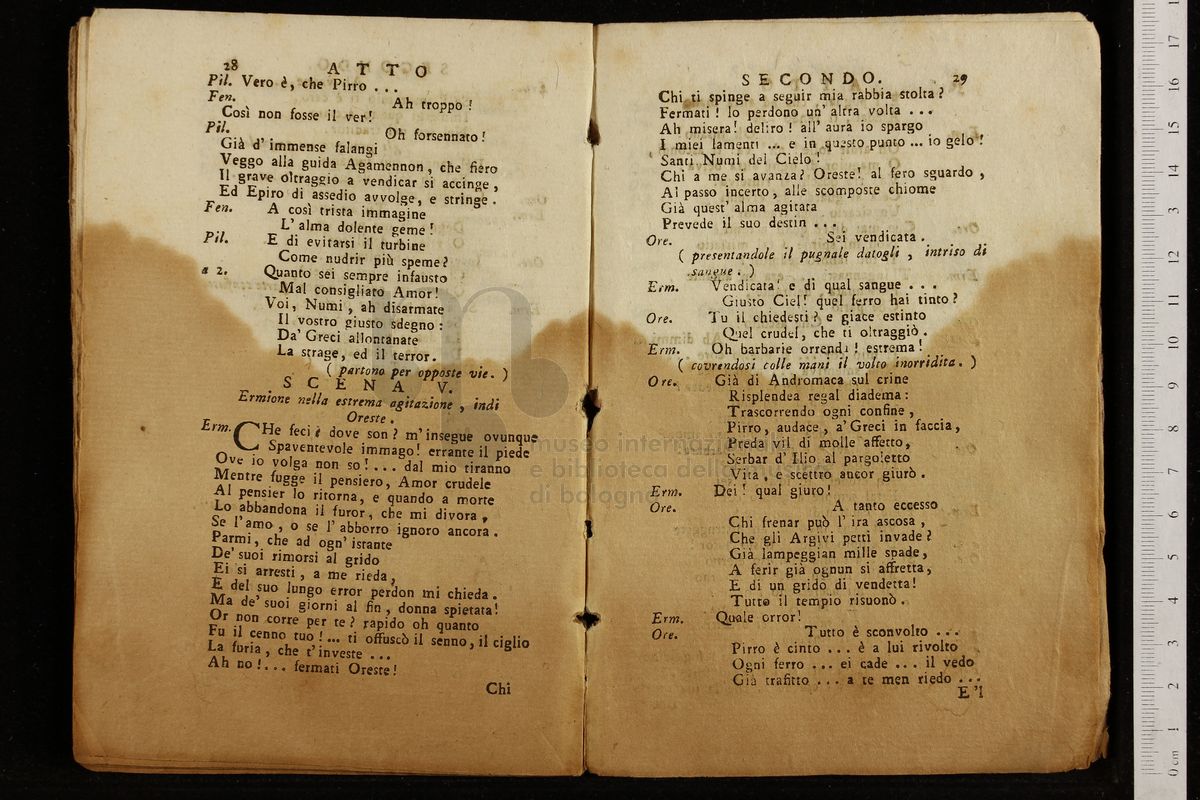 28 ATTO
Pil. Vero è, che Pirro ...
Fen. Ah troppo!
Così non fosse il ver!
Pil. Oh forsennato!
Già d'immense falangi
Veggo alla guida Agamennon, che fiero
Il grave oltraggio a vendicar si accinge,
Ed Epiro di assedio avvolge, e stringe.
Fen. A così trista immagine
L'alma dolente geme!
Pil. E di evitarsi il turbine
Come nudrir più speme?
a 2. Quanto sei sempre infausto
Mal consigliato Amor!
Voi, Numi, ah disarmate
Il vostro giusto sdegno:
Da' Greci allontanate
La strage, ed il terror.
( partono per opposte vie. )
SCENA V.
Ermione nella estrema agitazione, indi
Oreste.
Erm. CHe feci è dove son? m'insegue ovunque
Spaventevole immago! errante il piede
Ove io volga non so! ... dal mio tiranno
Mentre fugge il pensiero, Amor crudele
Al pensier lo ritorna, e quando a morte
Lo abbandona il furor, che mi divora,
Se l'amo, o se l'abborro ignoro ancora.
Parmi, che ad ogn'istante
De' suoi rimorsi al grido
Ei si arresti, a me rieda,
E del suo lungo error perdon mi chieda.
Ma de' suoi giorni al fin, donna spietata!
Or non corre per te? rapido oh quanto
Fu il cenno tuo! ... ti offuscò il senno, il ciglio
La furia, che t'investe ...
Ah no! ... fermati Oreste!
Chi
SECONDO. 29
Chi ti spinge a seguir mia rabbia stolta?
Fermati! Io perdono un'altra volta ...
Ah misera! deliro! all'aura io spargo
I miei lamenti ... e in questo punto ... io gelo!
Santi Numi del Cielo!
Chi a me si avanza? Oreste! al fero sguardo,
Al passo incerto, alle scomposte chiome
Già quest'alma agitata
Prevede il suo destin ....
Ore. Sei vendicata.
( presentandole il pugnale datogli, intriso di
sangue. )
Erm. Vendicata! e di qual sangue ...
Giusto Ciel! quel ferro hai tinto?
Ore. Tu il chiedesti? e giace estinto
Quel crudel, che ti oltraggiò.
Erm. Oh barbarie orrenda! estrema!
( covrendosi colle mani il volto inorridita. )
Ore. Già di Andromaca sul crine
Risplendea regal diadema:
Trascorrendo ogni confine,
Pirro, audace, a' Greci in faccia,
Preda vil di molle affetto,
Serbar d'Ilio al pargoletto
Vita, e scettro ancor giurò.
Erm. Dei! qual giuro!
Ore. A tanto eccesso
Chi frenar può l'ira ascosa,
Che gli Argivi petti invade?
Già lampeggian mille spade,
A ferir già ognun si affretta,
E di un grido di vendetta!
Tutto il tempio risuonò.
Erm. Quale orror!
Ore. Tutto è sconvolto ...
Pirro è cinto ... è a lui rivolto
Ogni ferro ... ei cade ... il vedo
Già trafitto ... a te men riedo ...
E 'l
museo internazionale
e biblioteca della musica
di bologna